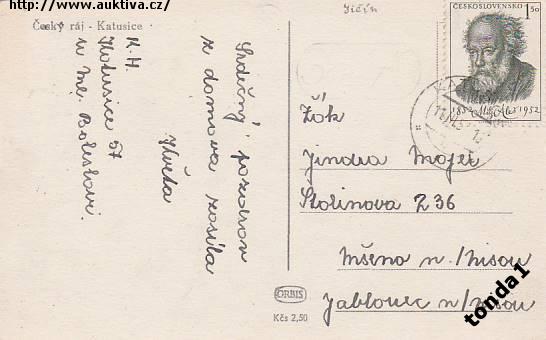 http://www.auktiva.cz/
Český ráj - Katusice
Jičín
K. H.
Katusice 57
u Ml. Boleslavi.
Srdečný pozdrav
z domova zasílá
Květa
ČESKOSLOVENSKO 1,50
1852 1952
Žák
Jindra Majer
Stalinova 236
Mšeno n./Nisou
Jablonec n/Nisou
ORBIS
Kčs 2,50
tonda1